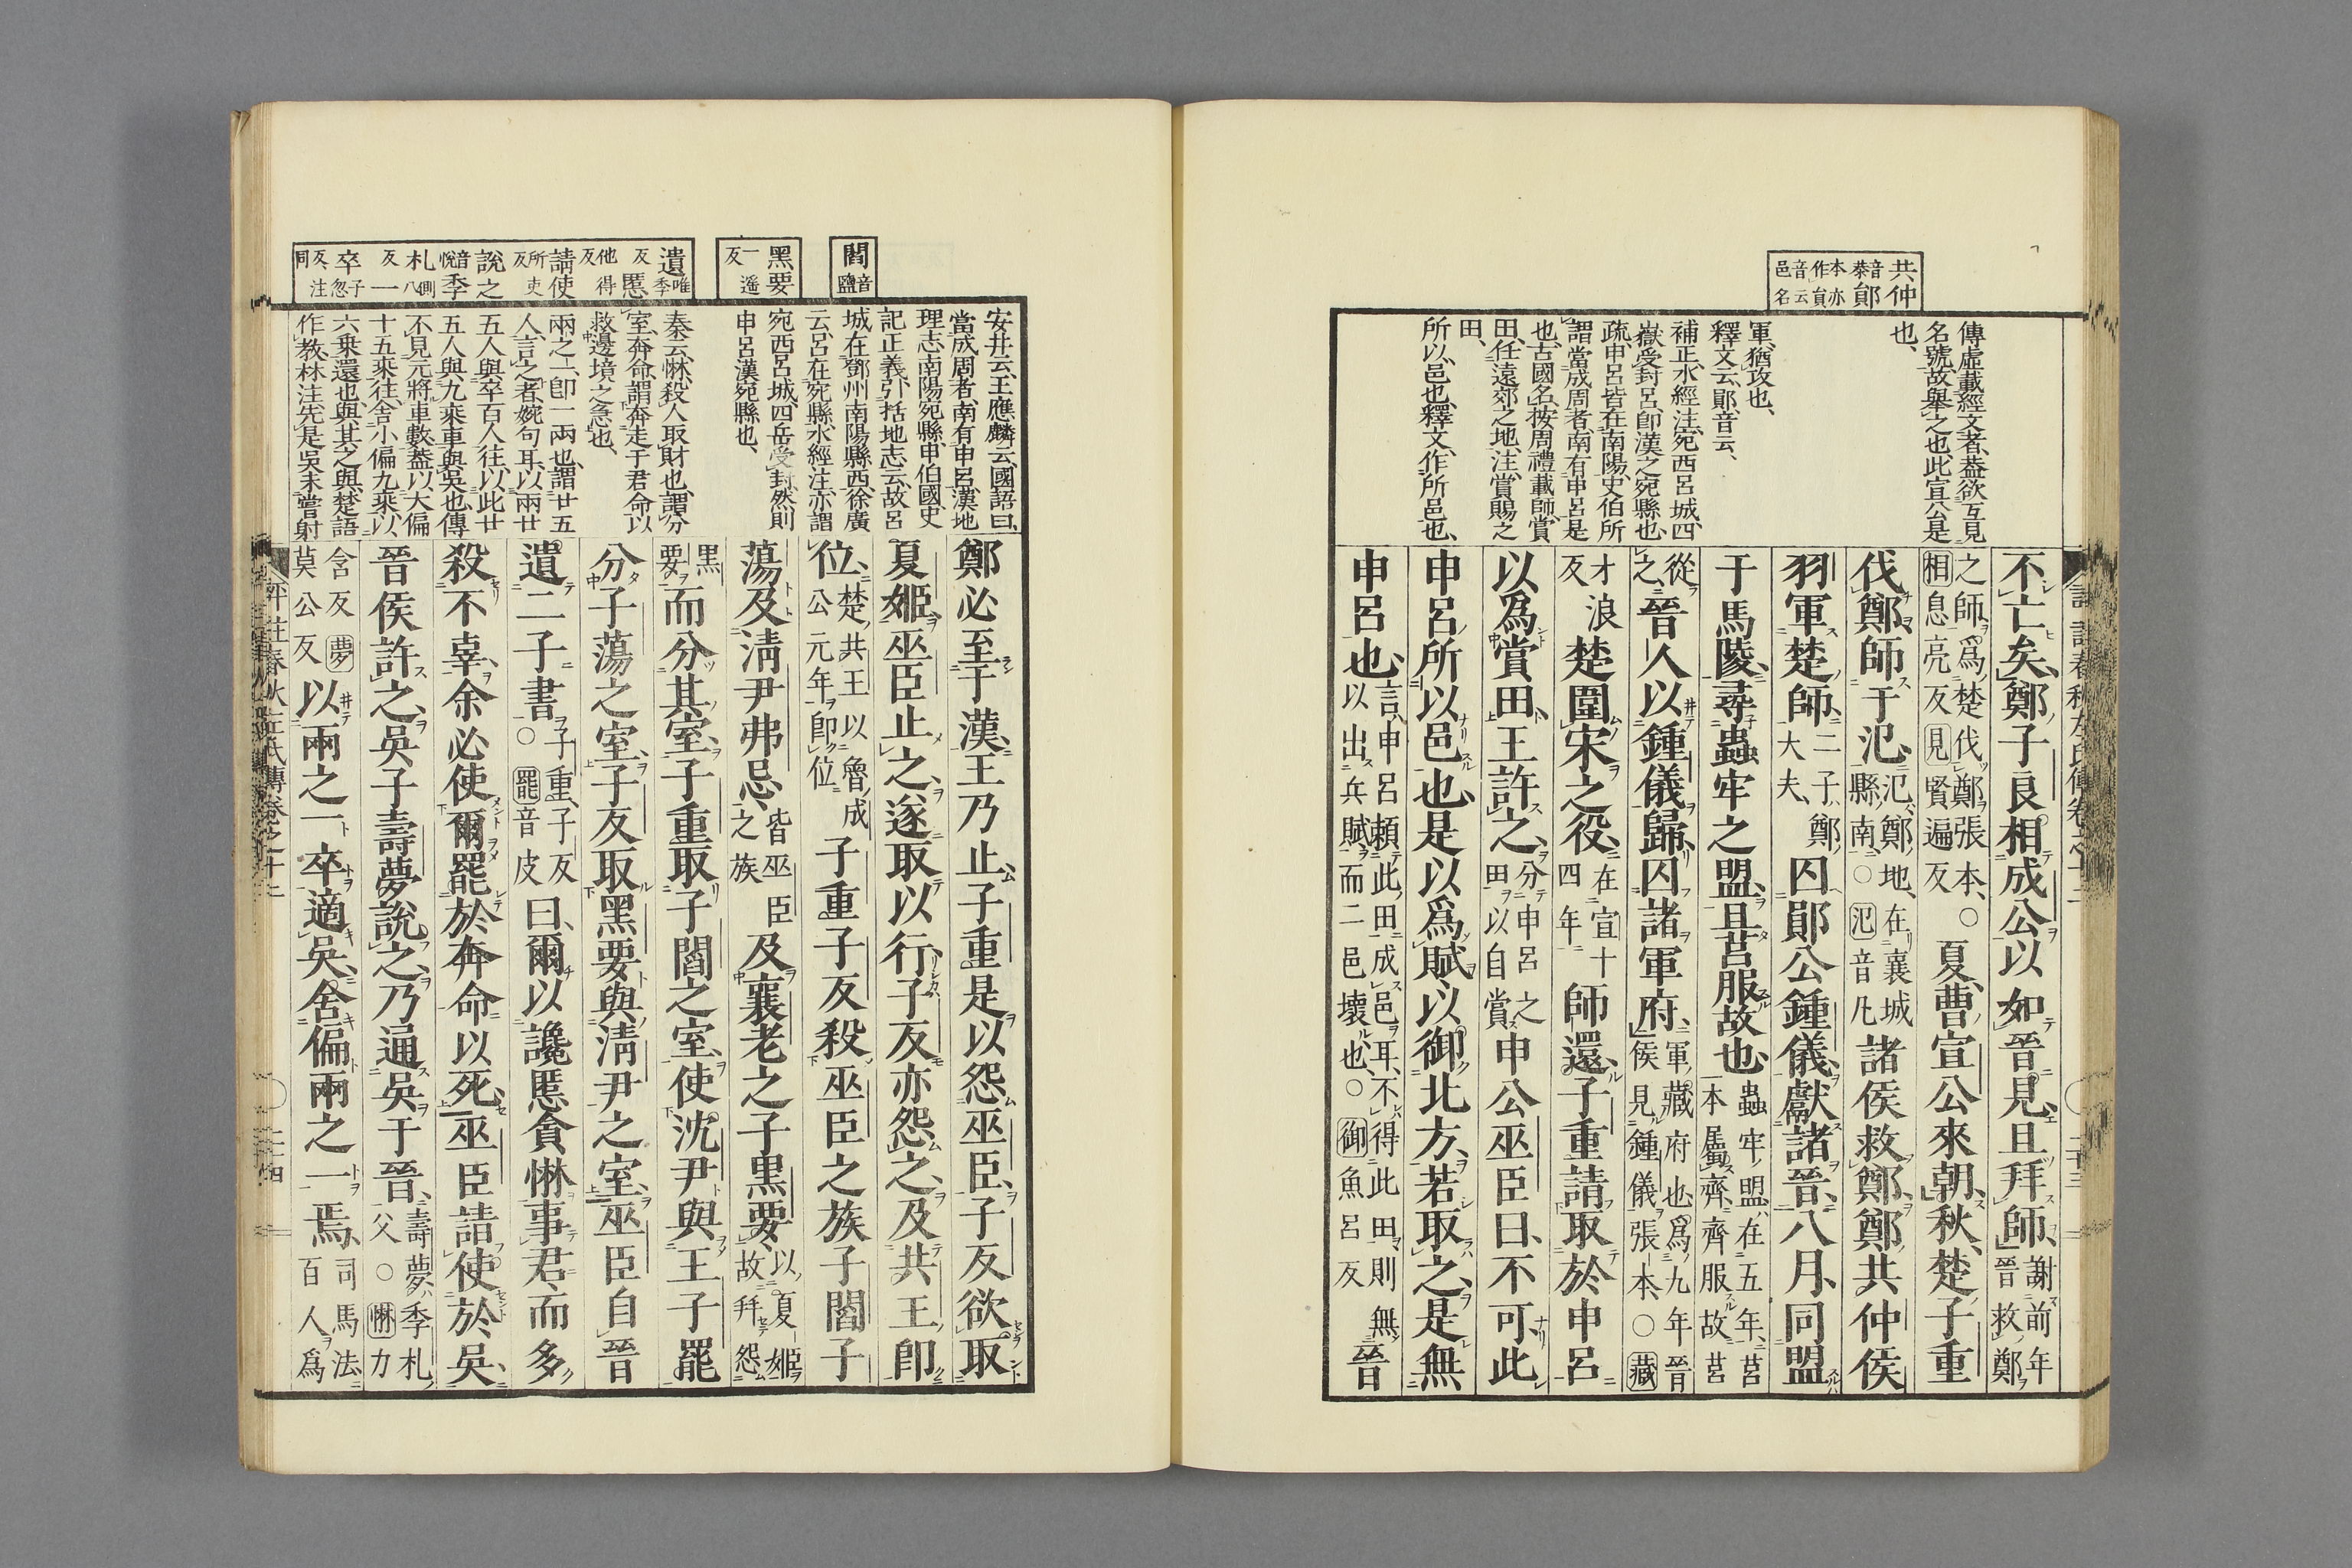 共仲
音恭鄖
本亦作員
音云邑名
傳虛載經文者、蓋欲互見
名號、故舉之也、此宣公是
也、
軍、猶攻也、
釋文云、鄖、音云、
補正、水經注、宛西呂城、四
嶽受封、呂、卽漢之宛縣也、
疏、申呂皆在南陽、史伯所
謂當成周者、南有申呂是
也、古國名、按周禮載師、賞
田、任遠郊之地、注、賞賜之
田、
所以邑也、釋文、作所邑也、
不亡矣、鄭子良相成公以如晉見、且拜師、謝前年晉救鄭
之師、爲楚伐鄭張本、○相息亮反見賢遍反夏、曹宣公來朝、秋、楚子重
伐鄭、師于氾、氾、鄭地、在襄城縣南、○氾音凡諸侯救鄭、鄭共仲侯
羽軍楚師、二子、鄭大夫、囚鄖公鍾儀、獻諸晉、八月、同盟
于馬陵、尋蟲牢之盟、且莒服故也、蟲牢盟、在五年、莒本屬齊、齊服故莒
從之、晉人以鍾儀歸、囚諸軍府、軍藏府也、爲九年晉侯見鍾儀張本、○藏
才浪反楚圍宋之役、在宣十四年師還、子重請取於申呂
以爲賞田、王許之、分申呂之田以自賞申公巫臣曰、不可、此
申呂所以邑也、是以爲賦、以御北方、若取之、是無
申呂也、言申呂賴此田成邑耳、不得此田則無以出兵賦、而二邑壞也、○御魚呂反晉
閻音鹽
黑要
一遥反
遺唯季
反慝
他得反
請使
所吏反
說之
音悅季
札側八
反一
卒子忽
反、注同
安井云、王應麟云、國語曰、
當成周者、南有申呂、漢地
理志、南陽宛縣、申伯國、史
記正義引括地志云、故呂
城在鄧州南陽縣西、徐廣
云、呂在宛縣、水經注亦謂
宛西呂城、四岳受封、然則
申呂漢宛縣也、
秦云、惏、殺人取財也、謂分
室、奔命、謂奔走于君命以
救邊境之急也、
兩之一、卽一兩也、謂廿五
人、言之者、婉句耳、以兩廿
五人與卒百人往、以此廿
五人與九乘車與吳也、傳
不見元將車數、蓋以大偏
十五乘往、舍小偏九乘、以
六乘還也、與其之與、楚語
作教、林注、先是吳未嘗射
鄭必至于漢、王乃止、子重是以怨巫臣、子反欲取
夏姬、巫臣止之、遂取以行、子反亦怨之、及共王卽
位、楚共王以魯成公元年卽位子重子反殺巫臣之族子閻子
蕩及淸尹弗忌、皆巫臣之族及襄老之子黑要、以夏姬故幷怨
黑要而分其室、子重取子閻之室、使沈尹與王子罷
分子蕩之室、子反取黑要與淸尹之室、巫臣自晉
遺二子書、子重、子反○罷音皮曰、爾以讒慝貪惏事君、而多
殺不辜、余必使爾罷於奔命以死、巫臣請使於吳、
晉侯許之、吳子壽夢說之、乃通吳于晉、壽夢、季札父○惏力
含反夢莫公反以兩之一卒適吳、舍偏兩之一焉、司馬法百人爲